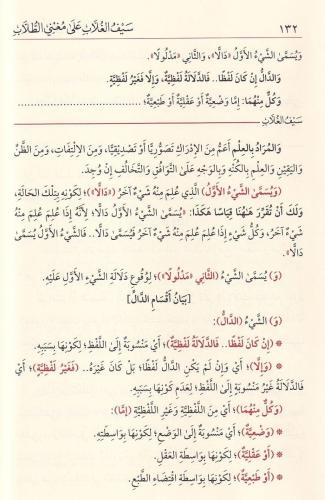 ١٣٢
سَيْفُ الغُلَّابِ عَلَى مُغْنِي الطُّلَّابِ
وَيُسَمَّى الشَّيْءُ الأَوَّلُ «دَالًّا»، وَالثَّانِي «مَدْلُولًا».
وَالدَّالُّ إِنْ كَانَ لَفْظًا.. فَالدَّلَالَةُ لَفْظِيَّةٌ، وَإِلَّا فَغَيْرُ لَفْظِيَّةٍ.
وَكُلٌّ مِنْهُمَا: إِمَّا وَضْعِيَّةٌ أَوْ عَقْلِيَّةٌ أَوْ طَبْعِيَّةٌ؛
سَيْفُ الغُلَّابِ
وَالمُرَادُ بِالعِلْمِ أَعَمُّ مِنَ الإِدْرَاكِ تَصَوُّرِيًّا أَوْ تَصْدِيقِيًّا، وَمِنَ الِالْتِفَاتِ، وَمِنَ الظَّنِّ
وَاليَقِينِ وَالعِلْمِ بِالكُنْهِ وَبِالوَجْهِ عَلَى التَّوَافُقِ وَالتَّخَالُفِ إِنْ وُجِدَ.
(وَيُسَمَّى الشَّيْءُ الأَوَّلُ) الَّذِي عُلِمَ مِنْهُ شَيْءٌ آخَرُ («دَالًّا»)؛ لِكَوْنِهِ بِتِلْكَ الحَالَةِ،
وَلَكَ أَنْ تُقَرِّرَ هَهُنَا قِيَاسًا هَكَذَا: «يُسَمَّى الشَّيْءُ الأَوَّلُ دَالًّا؛ لِأَنَّهُ إِذَا عُلِمَ عُلِمَ مِنْهُ
شَيْءٌ آخَرُ، وَكُلُّ شَيْءٍ إِذَا عُلِمَ عُلِمَ مِنْهُ شَيْءٌ آخَرُ فَيُسَمَّى دَالًّا.. فَالشَّيْءُ الأَوَّلُ يُسَمَّى
دَالًّا».
(وَ) يُسَمَّى الشَّيْءُ (الثَّانِي «مَدْلُولًا»)؛ لِوُقُوعِ دَلَالَةِ الشَّيْءِ الأَوَّلِ عَلَيْهِ.
[بَيَانُ أَقْسَامِ الدَّالِّ]
(وَ) الشَّيْءُ (الدَّالُّ):
* (إِنْ كَانَ لَفْظًا.. فَالدَّلَالَةُ لَفْظِيَّةٌ)؛ أَيْ: مَنْسُوبَةٌ إِلَى اللَّفْظِ؛ لِكَوْنِهَا بِسَبَبِهِ.
* (وَإِلَّا)؛ أَيْ: وَإِنْ لَمْ يَكُنِ الدَّالُّ لَفْظًا؛ بَلْ كَانَ غَيْرَهُ.. (فَغَيْرُ لَفْظِيَّةٍ)؛ أَيْ:
فَالدَّلَالَةُ غَيْرُ مَنْسُوبَةٍ إِلَى اللَّفْظِ؛ لِعَدَمِ كَوْنِهَا بِسَبَبِهِ.
(وَكُلٌّ مِنْهُمَا)؛ أَيْ: مِنَ اللَّفْظِيَّةِ وَغَيْرِ اللَّفْظِيَّةِ (إِمَّا):
* (وَضْعِيَّةٌ)؛ أَيْ: مَنْسُوبَةٌ إِلَى الوَضْعِ؛ لِكَوْنِهَا بِوَاسِطَتِهِ.
* (أَوْ عَقْلِيَّةٌ)؛ لِكَوْنِهَا بِوَاسِطَةِ العَقْلِ.
* (أَوْ طَبْعِيَّةٌ)؛ لِكَوْنِهَا بِوَاسِطَةِ اقْتِضَاءِ الطَّبْعِ.